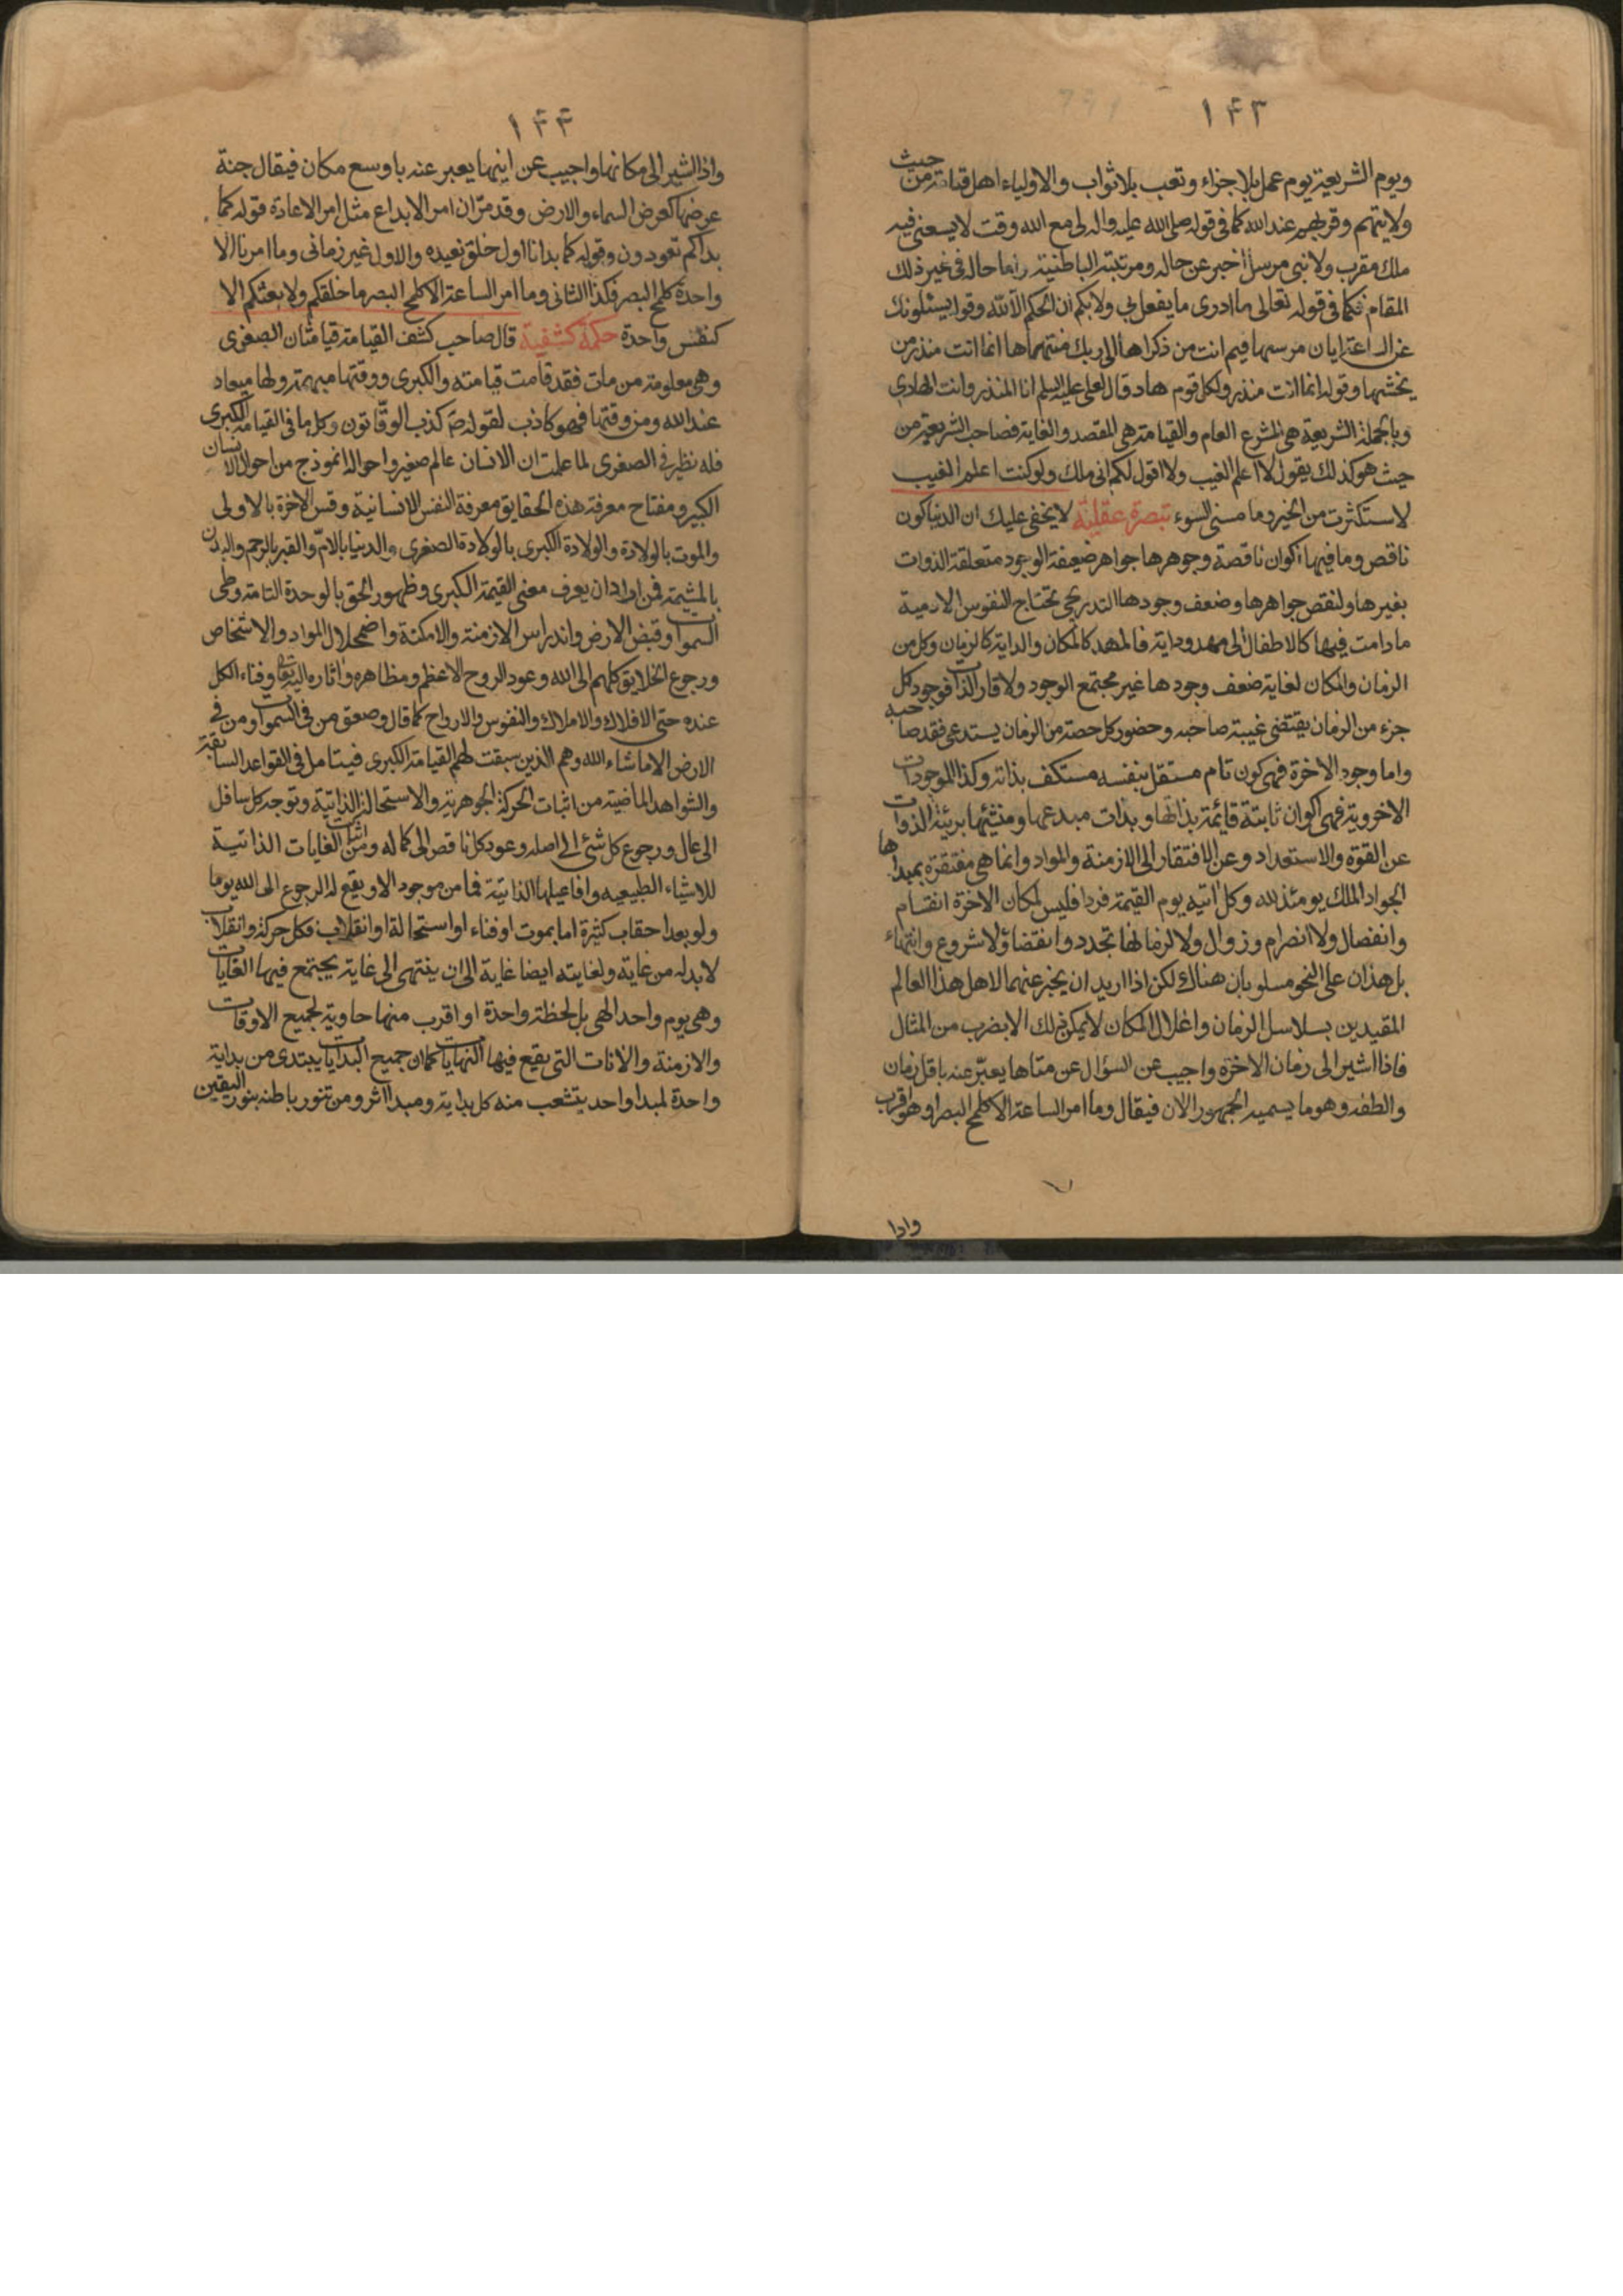 ١٤٣
ويوم الشريعة يوم عمل بلا جزاء وتعب بلا ثواب والاولياء اهل قيامة من حيث
ولايتهم وقربهم عند الله كما في قوله صلى الله عليه واله لى مع الله وقت لا يسعنى فيه
ملك مقرب ولا نبى مرسل اخبر عن حاله ومرتبته الباطنية واما حاله فى غير ذلك
المقام فكما فى قوله تعالى ما ادرى ما يفعل بى ولا بكم ان الحكم الا لله وقوله يسئلونك
عن الساعة ايان مرسيها فيم انت من ذكراها الى ربك منتهيها انما انت منذر من
يخشيها وقوله انما انت منذر ولكل قوم هاد قال لعلى عليه السلم انا المنذر وانت الهادى
وبالجملة الشريعة هى المشرع العام والقيامة هى المقصد والغاية فصاحب الشريعة من
حيث هو كذلك يقول لا اعلم الغيب ولا اقول لكم انى ملك ولو كنت اعلم الغيب
لاستكثرت من الخير وما مسنى السوء تبصرة عقلية لا يخفى عليك ان الدنيا كون
ناقص وما فيها اكوان ناقصة وجوهرها جواهر ضعيفة الوجود متعلقة الذوات
بغيرها ولنقص جواهرها وضعف وجودها التدريجى تحتاج النفوس الادمية
ما دامت فيها كالاطفال الى مهد وداية فالمهد كالمكان والداية كالزمان وكل من
الزمان والمكان لغاية ضعف وجودها غير مجتمع الوجود ولا قار الذات فوجود كل
جزء من الزمان يقتضى غيبة صاحبه وحضور كل حصة من الزمان يستدعى فقد صاحبه
واما وجود الاخرة فهى كون تام مستقل بنفسه مستكف بذاته وكذا الموجودات
الاخروية فهى اكوان ثابتة قائمة بذاتها وبذات مبدعها ومنشئها بريئة الذوات
عن القوة والاستعداد وعن الافتقار الى الازمنة والمواد وانما هى مفتقرة بمبدأها
الجواد الملك يومئذ لله وكل اتيه يوم القيمة فردا فليس لمكان الاخرة انقسام
وانفصال ولا انصرام وزوال ولا لزمانها تجدد وانقضاء ولا شروع وانتهاء
بل هذان على النحو مسلوبان هناك لكن اذا اريد ان يخبر عنهما لاهل هذا العالم
المقيدين بسلاسل الزمان واغلال المكان لا يمكن ذلك الا بضرب من المثال
فاذا اشير الى زمان الاخرة واجيب عن السؤال عن متاها يعبّر عنه باقل زمان
والطفه وهو ما يسميه الجمهور الان فيقال وما امر الساعة الا كلمح البصر او هو اقرب
واذا
١٤٤
واذا اشير الى مكانها واجيب عن اينها يعبر عنه باوسع مكان فيقال جنة
عرضها كعرض السماء والارض وقد مرّ ان امر الابداع مثل امر الاعادة قوله كما
بداكم تعودون وقوله كما بدانا اول خلق نعيده والاول غير زمانى وما امرنا الا
واحدة كلمح البصر فكذا الثانى وما امر الساعة الا كلمح البصر ما خلقكم ولا بعثكم الا
كنفس واحدة حكمة كشفية قال صاحب كشف القيامة قيامتان الصغرى
وهى معلومة من مات فقد قامت قيامته والكبرى ووقتها مبهمة ولها ميعاد
عند الله ومن وقتها فهو كاذب لقوله ص كذب الوقّاتون وكل ما فى القيامة الكبرى
فله نظير فى الصغرى لما علمت ان الانسان عالم صغير واحواله انموذج من احوال الانسان
الكبير ومفتاح معرفة هذه الحقايق معرفة النفس الانسانية وقس الاخرة بالاولى
والموت بالولادة والولادة الكبرى بالولادة الصغرى والدنيا بالامّ والقبر بالرحم والبدن
بالمشيمة فمن اراد ان يعرف معنى القيمة الكبرى وظهور الحق بالوحدة التامة وطى
السموات وقبض الارض واندراس الازمنة والامكنة واضمحلال المواد والاشخاص
ورجوع الخلايق كلهم الى الله وعود الروح الاعظم ومظاهره واثاره اليه تعا وفناء الكل
عنده حتى الافلاك والاملاك والنفوس والارواح كما قال وصعق من فى السموات ومن فى
الارض الا ما شاء الله وهم الذين سبقت لهم القيامة الكبرى فيتامل فى القواعد السابقة
والشواهد الماضية من اثبات الحركة الجوهرية والاستحالة الذاتية وتوجه كل سافل
الى عال ورجوع كل شئ الى اصله وعود كل ناقص الى كماله ومن اثبات الغايات الذاتية
للاشياء الطبيعيه وافاعيلها الذاتية فما من موجود الا ويقع له الرجوع الى الله يوما
ولو بعد احقاب كثيرة اما بموت او فناء او استحالة او انقلاب فكل حركة وانقلاب
لا بد له من غاية ولغايته ايضا غاية الى ان ينتهى الى غاية يجتمع فيها الغايات
وهى يوم واحد الهى بل لحظة واحدة او اقرب منها حاوية لجميع الاوقات
والازمنة والانات التى يقع فيها النهايات كما ان جميع البدايات يبتدى من بداية
واحدة لمبدا واحد يتشعب منه كل بداية ومبدا اثر ومن تنور باطنه بنور اليقين